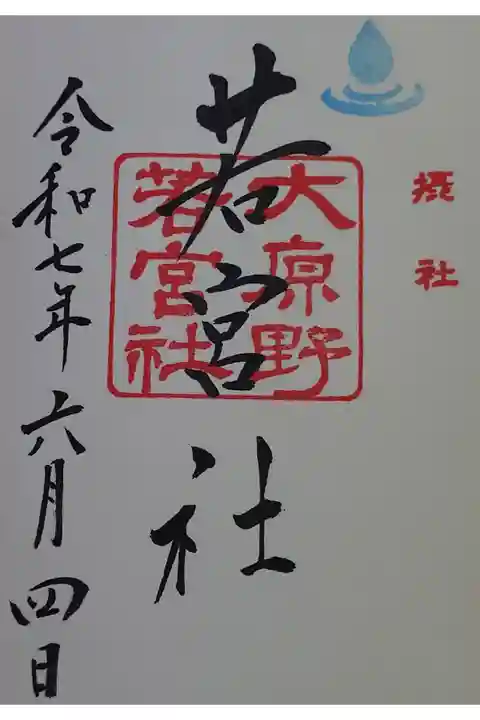 摂社
大原野
若宮社
若宮社
令和七年六月四日